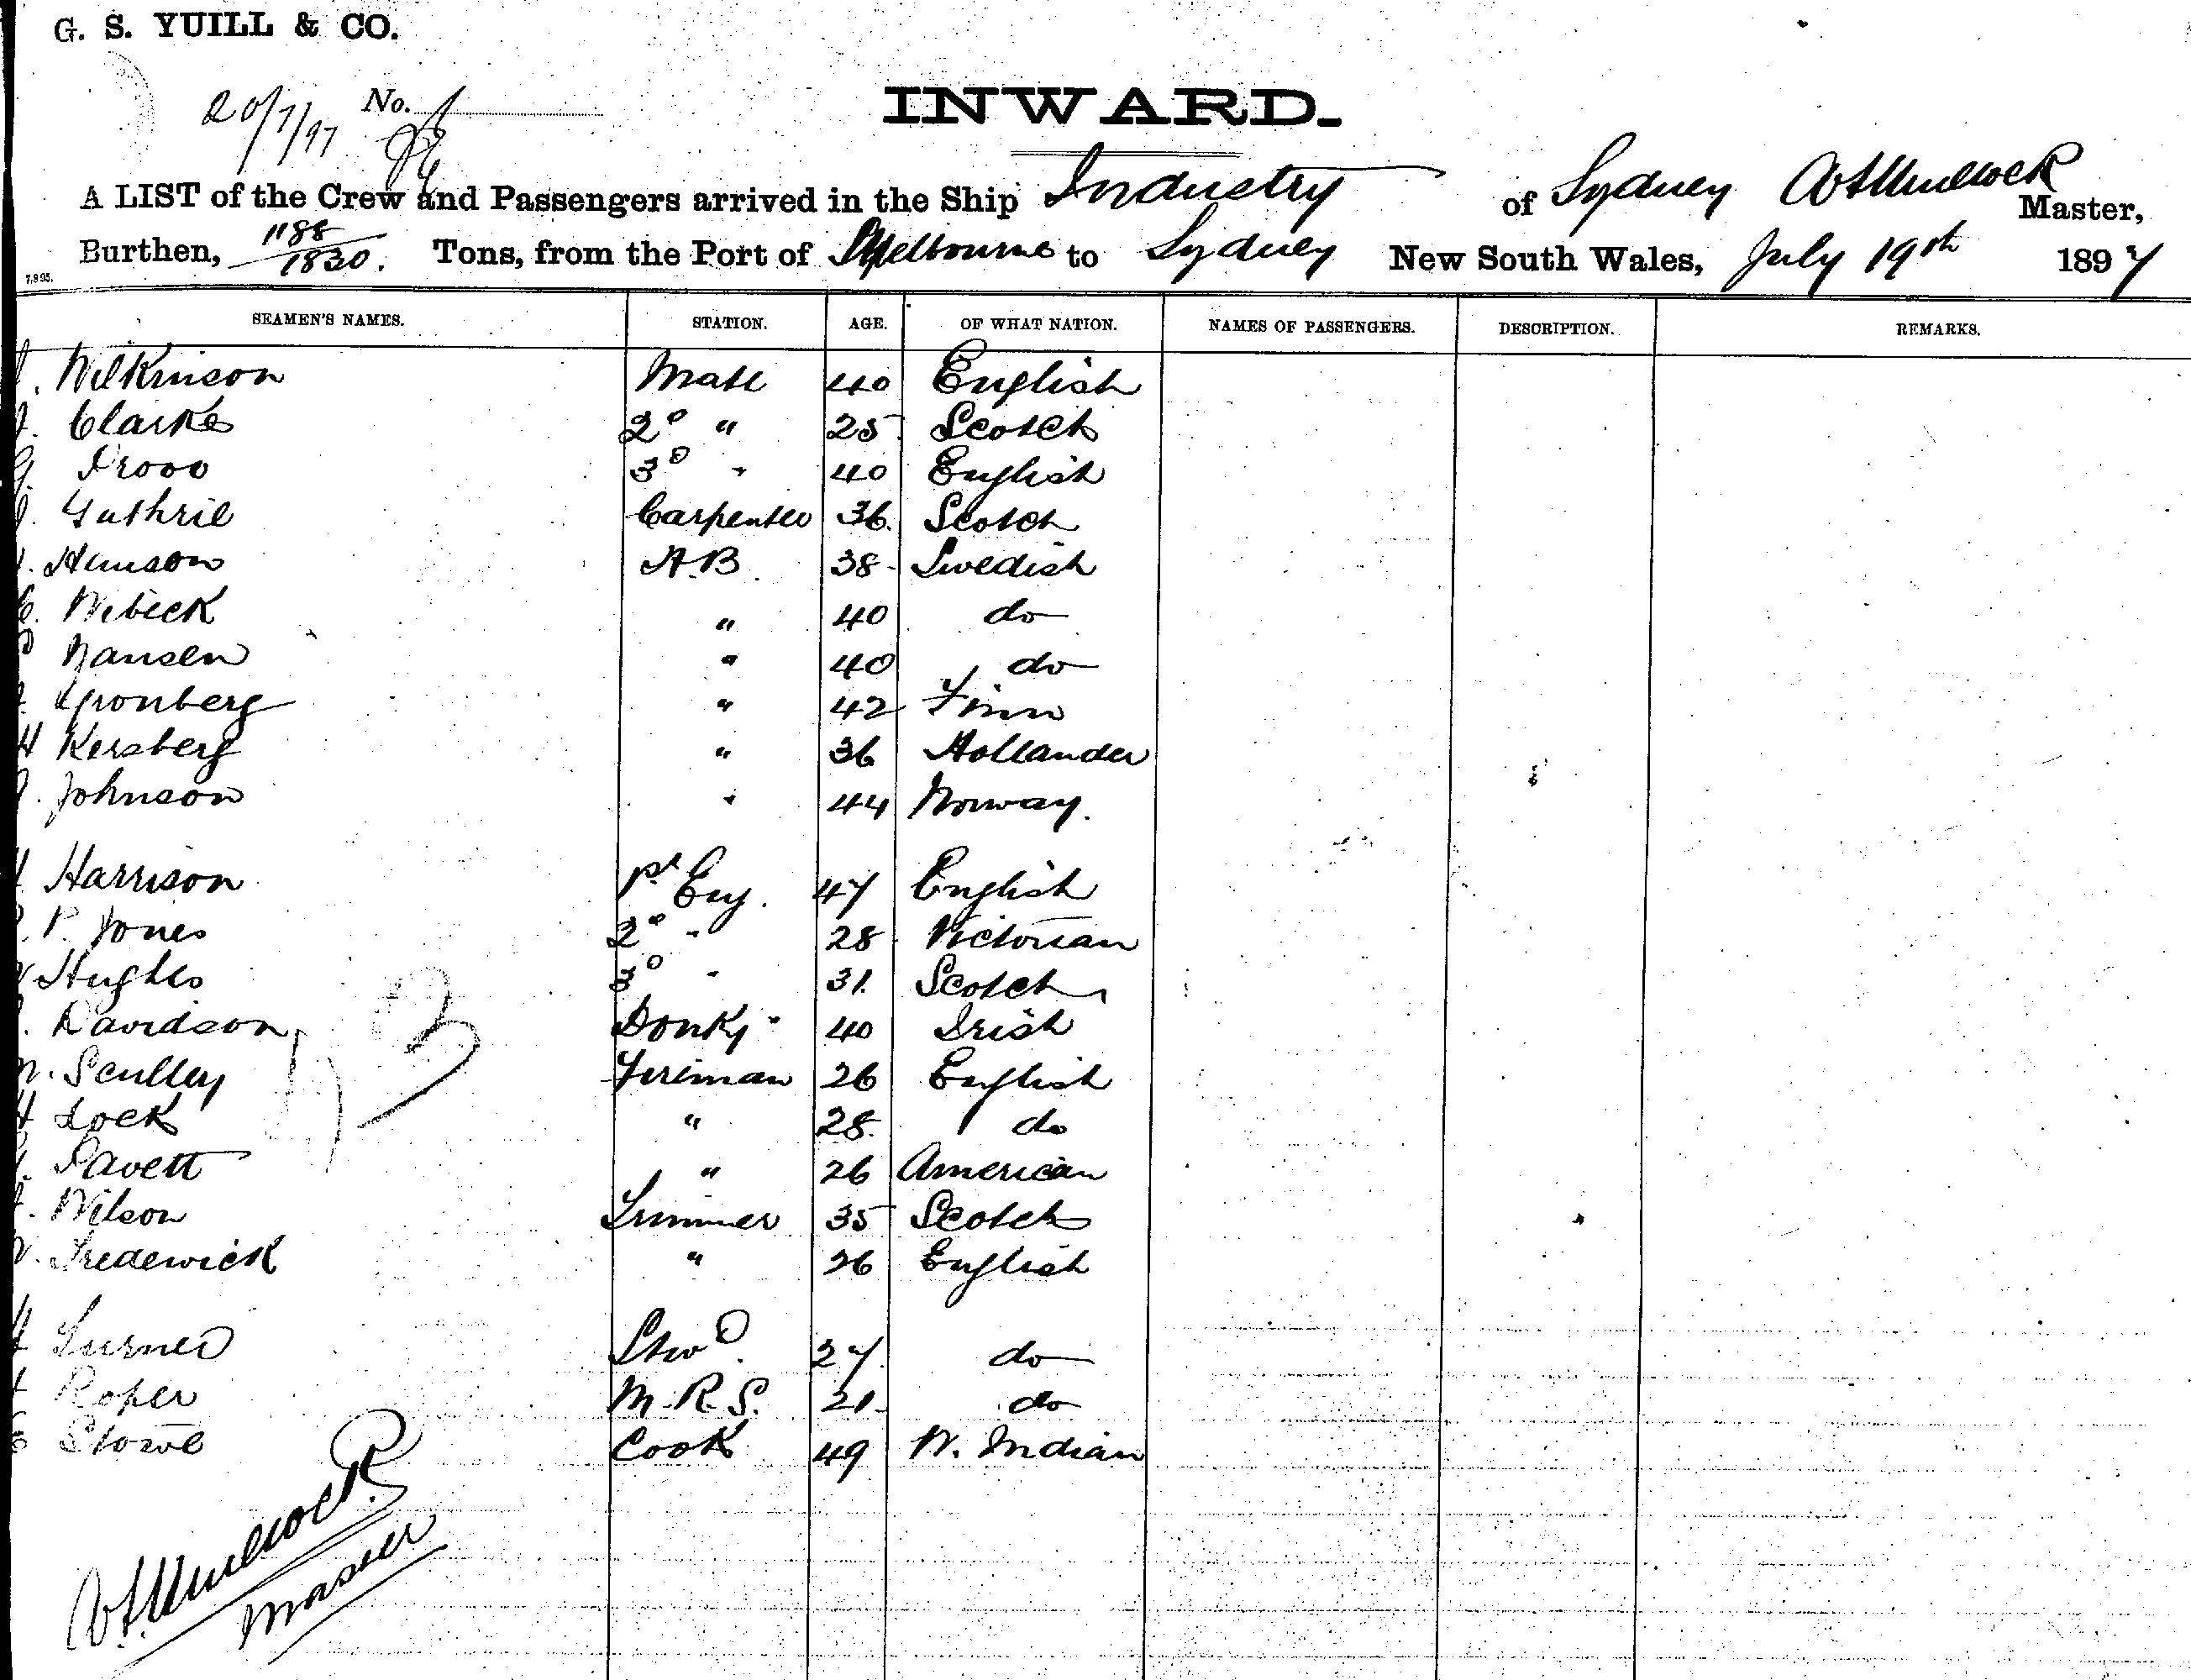 G. S. YUILL & CO.
20/7/97 No.
INWARD.
A LIST of the Crew and Passengers arrived in the Ship Industry of Sydney Master,
Burthen, 1188/1830. Tons, from the Port of Melbourne to Sydney New South Wales, July 19th 1897
7.9.95.
SEAMEN'S NAMES. STATION. AGE. OF WHAT NATION. NAMES OF PASSENGERS. DESCRIPTION. REMARKS.
Wilkinson Mate 40 English
Clarke 2° " 25 Scotch
3° " 40 English
Guthrie Carpenter 36. Scotch
A.B. 38 Swedish
C. Wibeck " 40 do
Nansen " 40 do
Gronberg " 42 Finn
H Kersberg " 36 Hollander
Johnson " 44 Norway.
H Harrison 1st Eng. 47 English
P. Jones 2° " 28 Victorian
Hughes 3° " 31. Scotch
Davidson Donky " 40 Irish
Sculley Fireman 26 English
H Lock " 28. do
Savett " 26 American
Wilson Trimmer 35 Scotch
Tredewick " 26 English
H Turner Stwd. 27. do
Roper M.R.S. 21. do
Stowe Cook 49 W. Indian
Master